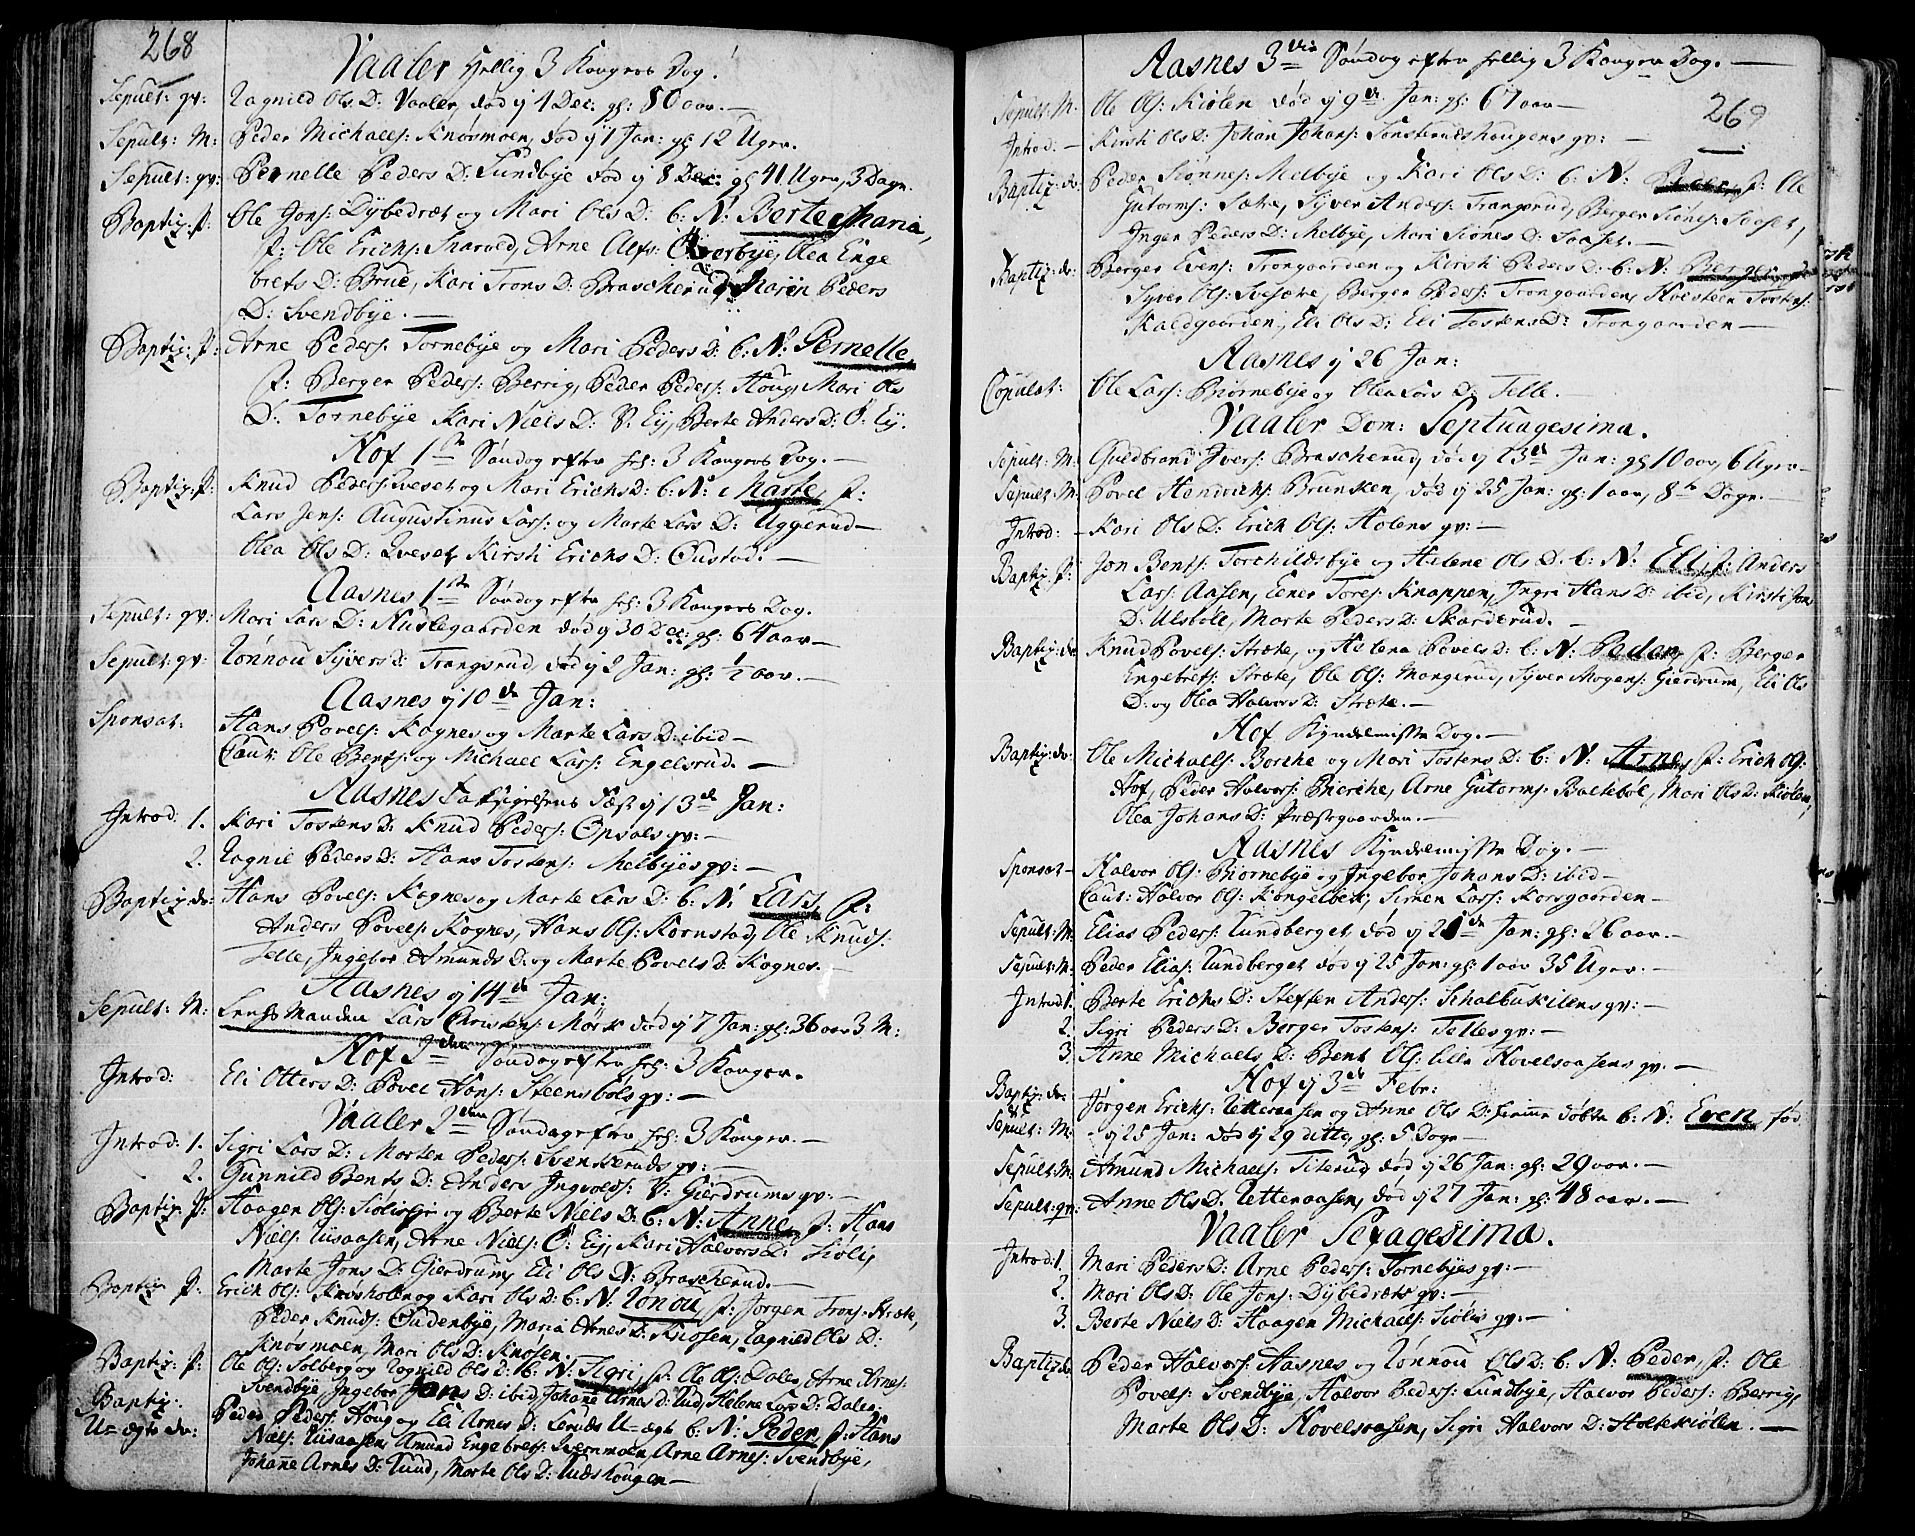 268
Vaaler Hellig 3 Kongers Dag.
Sepult: qv: Ragnild Ols D: Vaaler, død ij 4 Dec: gl: 80 aar.
Sepult: M: Peder Michaels: Knosmoen, død ij 1 Jan: gl 12 Uger.
Sepult: qv: Pernelle Peders D: Sundbye død ij 8 Dec: gl 41 Uger, 3 Dage.
Baptiz: P: Ole Jons: Dybedræt og Mari Ols D: b: N: Berte Maria,
P: Ole Erichs: Skarold, Arne Alfs: Overbye, Olea Enge
brets D: Brue, Kari Trons D: Brascherud, Maren Peders
D: Svendbye.
Baptiz: P: Arne Peders: Tornebye og Mari Peders D: b: N: Pernelle,
P: Berger Peders: Berrig, Peder Peders: Houg, Mari Ols
D: Tornebye Kari Niels D: V. Ey, Berte Anders D: O: Ey.
Hof 1te Søndag efter hel: 3 Kongers Dag.
Baptiz: P: Knud Peders: Qveset og Mari Erichs D: b: N: Marte P:
Lars Jens: Augustinus Lars: og Marte Lars D: Uggerud
Olea Ols D: Qveset, Kirsti Erichs D: Oustad.
Aasnes 1ste Søndag efter hel: 3 Kongers Dag.
Sepult: qv: Mari Lars D: Huslegaarden død ij 30 Dec: gl: 64 aar
Sepult: qv: Rønnou Syvers D: Trangsrud, død ij 2 Jan: gl: 1/2 aar.
Aasnes ij 10de Jan:
Sponsat: Hans Povels: Kognes og Marte Lars D: ibid
Caut: Ole Bents: og Michael Lars: Engelsrud.
Aasnes Taksigelsens Fæst ij 13de Jan:
Introd: 1. Kari Tostens D: Knud Peders: Opsals qv:
2. Ragnil Peders D: Hans Tostens: Melbyes qv:
Baptiz: do: Hans Povels: Kognes og Marte Lars D: b: N: Lars, P:
Anders Povels: Kognes, Hans Ols: Kornstad, Ole Knuds:
Telle, Ingebor Amunds D: og Marte Povels D: Kognes.
Aasnes ij 14de Jan:
Sepult: M: Lensmanden Lars Christens: Mørk død ij 7 Jan: gl: 36 aar 3 M:
Hof 2den Søndag efter hel: 3 Konger.
Introd: Eli Otters D: Povel Hans: Steensbøls qv:
Vaaler 2den Søndag efter hel: 3 Konger.
Introd: 1. Sigri Lars D: Morten Peders: Svenkeruds qv:
2. Gunnild Bents D: Anders Ingvolds: V: Gierdrums qv:
Baptiz: P: Haagen Ols: Siølie og Berte Niels D: b: N: Anne, P: Hans
Niels: Riisaasen, Arne Niels: O: Ey, Kari Halvors D: Siøli,
Marte Jons D: Gierdrum, Eli Ols D: Brascherud.
Baptiz: P: Erich Ols: Knoskolen og Kari Ols D: b: N: Rønou, P: Jørgen Trons: Stræte,
Peder Knuds: Oudenbye, Maria Arnes D: Knosen, Ragnild Ols D:
Knosmoen, Mari Ols D: Knosen.
Baptiz: P: Ole Ols: Solberg og Ragnild Ols D: b: N: Sigri, P: Ole Ols: Dalen Arne Arnes:
Svendbye, Ingebor Jans D: ibid, Johane Arnes D: Rud, Helene Lars D: Dalen.
Baptiz: Peder Peders: Houg og Eli Arnes D: Leruds U=ægte b: N: Peder, P: Hans
U=ægte do: Niels: Riisaasen, Amund Engebrets: Svenmoen, Arne Arnes: Svendbye,
Johane Arnes D: Rud, Marte Ols D: Rudshougen
Aasnes 3die Søndag efter hellig 3 Konger Dag.
269
Sepult: M: Ole Ols: Kiølen død ij 9de Jan: gl: 67 aar
Introd: Kirsti Ols D: Johan Johans: Sønsteruds Haugens qv:
Baptiz: do: Peder Siønnes: Melbye og Kari Ols D: b: N: P: Ole
Gutorms: Sætre, Syver Anders: Trangsrud, Berger Siønes: Sdaset,
Inger Peders D: Melbye, Mari Siønes D: Saaset.
Baptiz: do: Berger Evens: Trongaarden og Kirsti Peders D: b: N: Berger
Syver Ols: Svesætre, Berger Peders: Trongaarden, Holsteen Tostens:
Kaldgaarden, Eli Ols D: Eli Tostens D: Trongaarden
Aasnes ij 26 Jan:
Copulat: Ole Lars: Biørnebye og Olea Lars D: Telle.
Vaaler Dom: Septuagesima.
Sepult: M: Guldbrand Ivers: Brascherud, død ij 23de Jan: gl 10 aar, 6 Uger
Sepult: M: Povel Hendrichs: Brunken, død ij 25 Jan: gl: 1 aar, 8te Dage.
Introd: Kari Ols D: Erich Ols: Holens qv:
Baptiz: P: Jon Bents: Torchildsbye og Helene Ols D: b: N: Eli, P: Anders
Lars: Aasen, Ener Tores: Knappen, Ingri Hans D: ibid, Kirsti Jons
D: Ulsbøle, Marte Peders D: Skarderud.
Baptiz: do Knud Povels: Stræte, og Helena Povels D: b: N: Peder, P: Berger
Engebrets: Stræte, Ole Ols: Mangerud, Syver Mogens: Gierdrum, Eli Ols
D: og Olea Halvors D: Stræte.
Hof Kyndelmisse Dag.
Baptiz: do: Ole Michaels: Borche og Mari Tostens D: b: N: Arne, P: Erich Ols:
Hof, Peder Halvors: Bierche, Arne Gutorms: Baltebøl, Mari Ols D: Kiølen,
Olea Johans D: Præstgaarden.
Aasnes Kyndelmisse Dag.
Sponsat Halvor Ols: Biørnebye og Ingebor Johans D: ibid
Caut: Halvor Ols: Kongelbek, Simen Lars: Korsgaarden
Sepult: M: Elias Peders: Lundberget død ij 21de Jan: gl: 26 aar.
Sepult: M: Peder Elias: Lundberget død ij 25 Jan: gl: 1 aar 35 Uger.
Introd: 1. Berte Erichs D: Steffen Anders: Schalbuskilens qv:
2. Sigri Peders D: Berger Tostens: Telles qv:
3. Anne Michaels D: Bent Ols: lille Hovelsaasens qv:
Hof ij 3de Febr:
Baptiz: do: &c Jørgen Erichs: Rettenaasen og Anne Ols D: hiemme døbte b: N: Even, fød
Sepult: M: ij 25 Jan: død ij 29 ditto, gl: 5 Dage
Sepult: M: Amund Michaels: Titerud, død ij 26 Jan: gl: 29 aar.
Sepult: qv: Anne Ols D: Rettenaasen, død ij 27 Jan: gl: 48 aar.
Vaaler Sexagesima.
Introd: 1. Mari Peders D: Arne Peders: Tornebyes qv:
2. Mari Ols D: Ole Jons: Dybedræts qv:
3. Berte Niels D: Haagen Michaels: Siølis qv:
Baptiz: do Peder Halvors: Aasnes og Rønnou Ols D: b: N: Peder, P: Ole
Povels: Svendbye, Halvor Peders: Sundbye, Halvor Peders: Berrig,
Marte Ols D: Hovelsaasen, Sigri Halvors D: Holtekiølen.